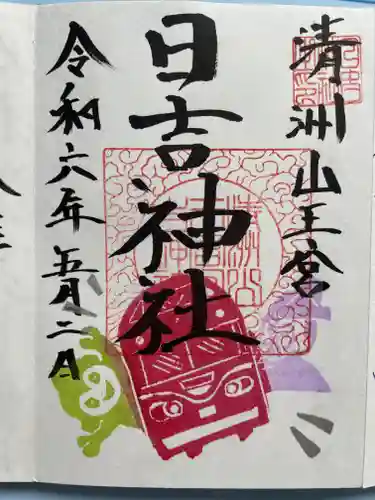 清洲山王宮
日吉神社
令和六年五月二日